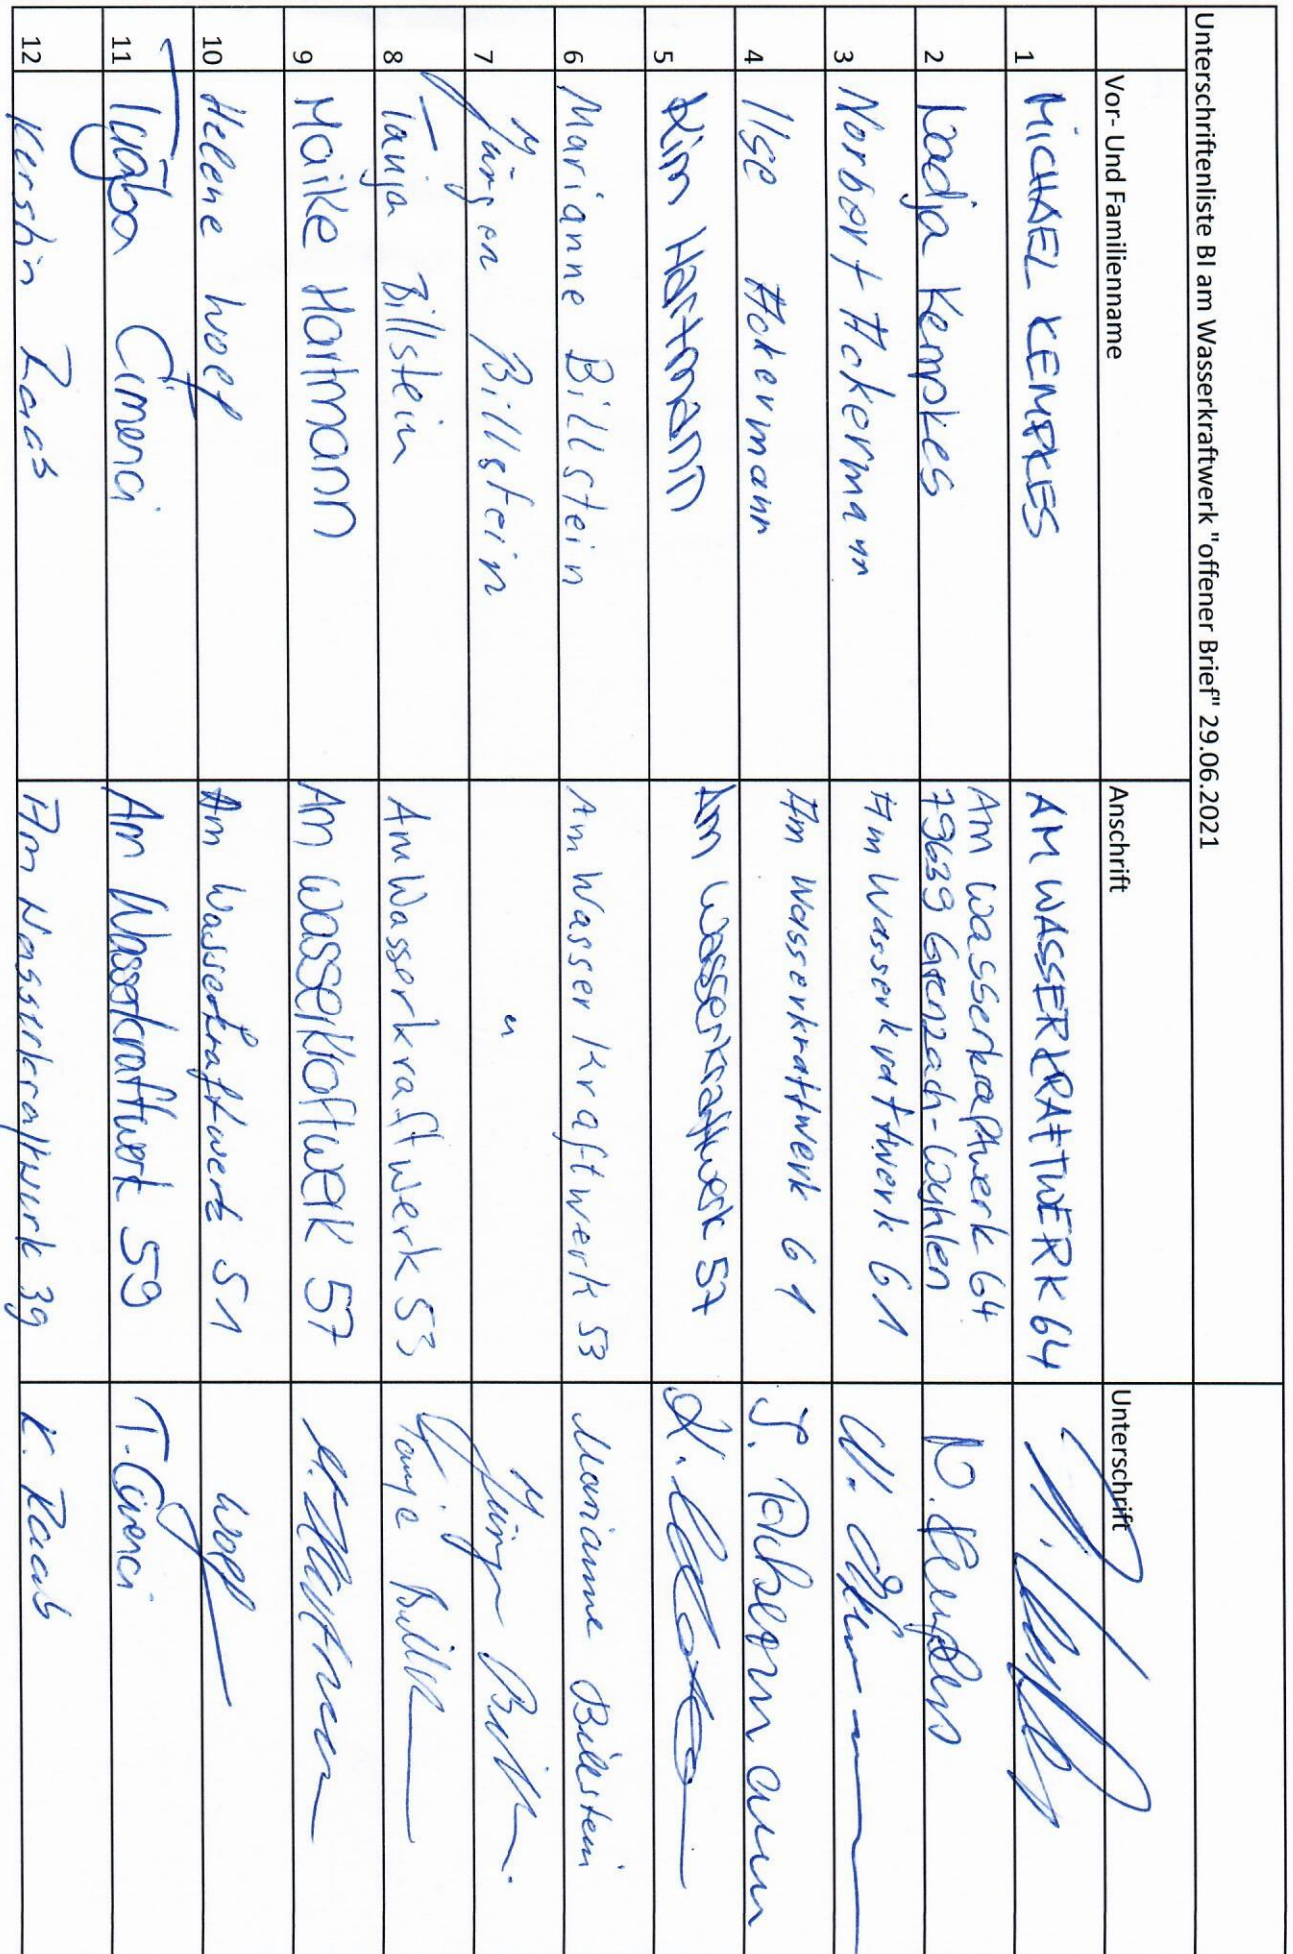 Unterschriftenliste BI am Wasserkraftwerk "offener Brief" 29.06.2021
Vor- Und Familienname Anschrift Unterschrift
1 MICHAEL KEMPKES AM WASSERKRAFTWERK 64
2 Nadja Kempkes Am Wasserkraftwerk 64
79639 Grenzach-Wyhlen N. Kempkes
3 Norbert Ackermann Am Wasserkraftwerk 61
4 Ilse Ackermann Am Wasserkraftwerk 61 I. Ackermann
5 Kim Hartmann Am Wasserkraftwerk 57
6 Marianne Billstein Am Wasserkraftwerk 53 Marianne Billstein
7 Jürgen Billstein " Jürgen
8 Tanja Billstein Am Wasserkraftwerk 53 Tanja
9 Maike Hartmann Am Wasserkraftwerk 57 M. Hartmann
10 Helene Wolf Am Wasserkraftwerk 51 Wolf
11 Tuğba Çimenci Am Wasserkraftwerk 59
12 Kerstin Raab Am Wasserkraftwerk 39 K. Raab